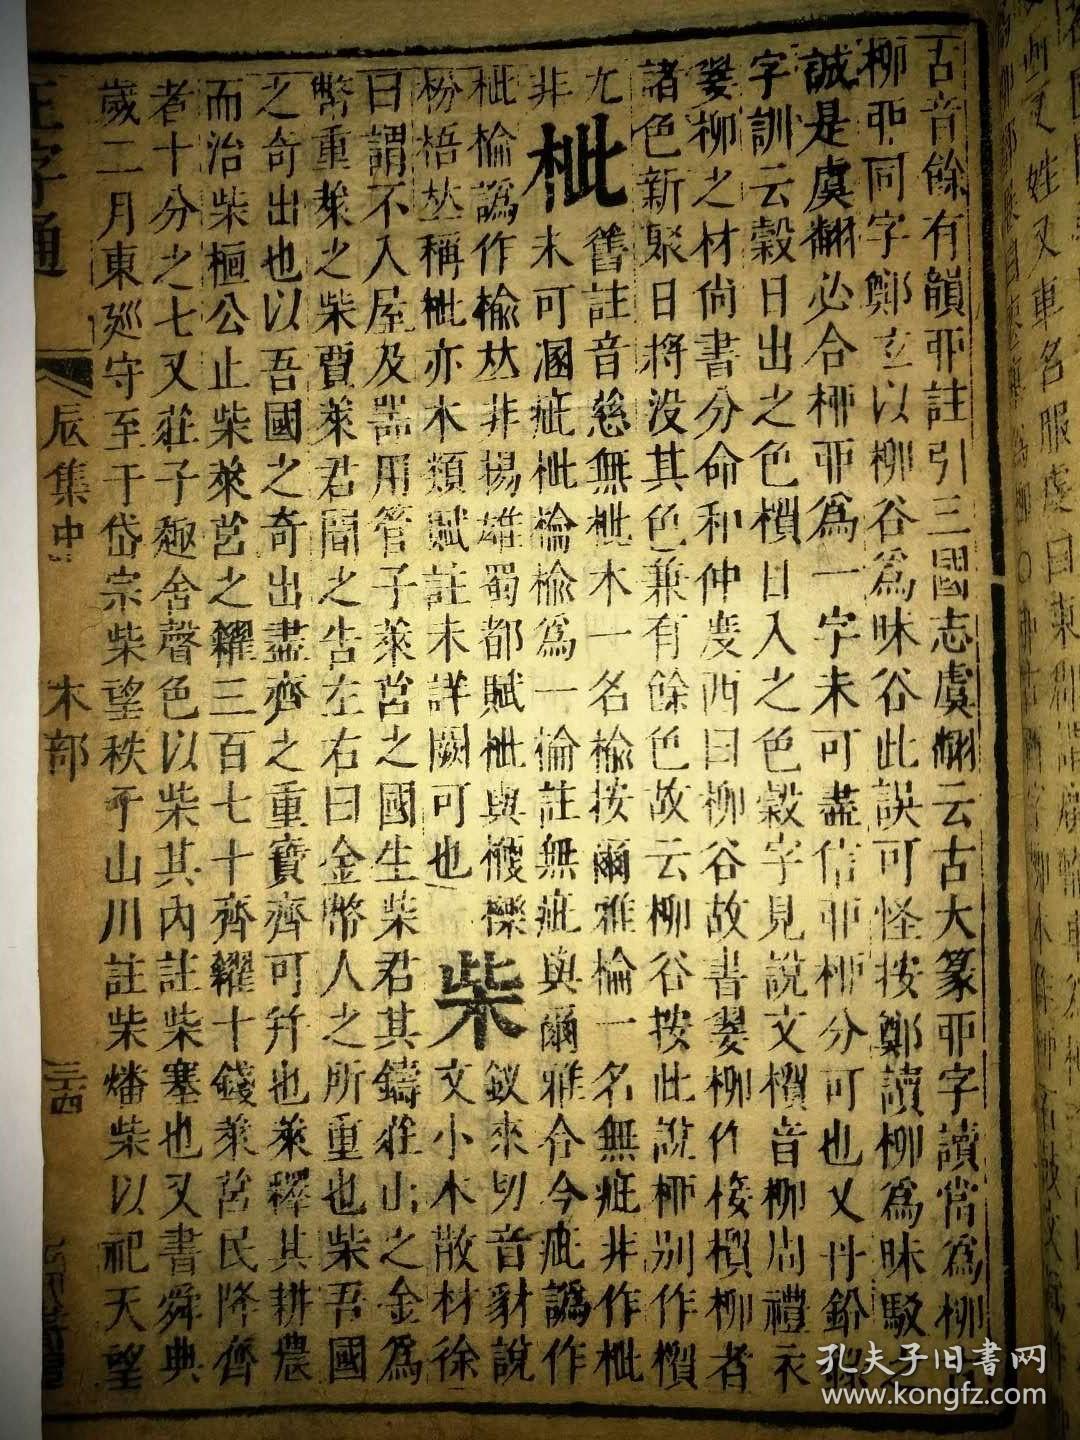 古音餘有韻丣註引三國志虞翻云古大篆丣字讀當爲柳古
柳丣同字鄭玄以柳谷爲昧谷此誤可怪按鄭讀柳爲昧駁
誠是虞翻必合桺丣爲一字未可盡信丣桺分可也又丹鉛
字訓云榖日出之色檟日入之色榖字見說文檟音柳周禮衣
翣柳之材尚書分命和仲度西曰柳谷故書翣柳作接檟柳者
諸色新聚日將没其色兼有餘色故云柳谷按此說桺别作檟
尢
枇
舊註音慈無枇木一名榆按爾雅棆一名無疵非作枇
非未可溷疵枇棆榆爲一棆註無疵與爾雅合今疵譌作
枇棆譌作榆𠀤非揚雄蜀都賦枇與櫻櫟
枌梧𠀤稱枇亦木類賦註未詳闕可也
柴
釵來切音豺說
文小木散材徐
曰謂不入屋及器用管子萊莒之國生柴君其鑄莊山之金爲
幣重萊之柴賈萊君聞之告左右曰金幣人之所重也柴吾國
之奇出也以吾國之奇出盡齊之重寶齊可并也萊釋其耕農
而治柴桓公止柴萊莒之糴三百七十齊糴十錢萊莒民降齊
者十分之七又莊子趣舍聲色以柴其內註柴塞也又書舜典
歲二月東廵守至于岱宗柴望秩于山川註柴燔柴以祀天望
正字通
辰集中
木部
三十四
孔夫子旧書网
www.kongfz.com